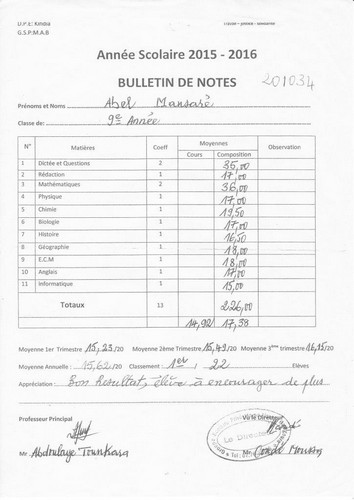 D.P.E: Kindia
Travail – Justice – Solidarité
G.S.P.M.A.B
Année Scolaire 2015 - 2016
BULLETIN DE NOTES 201034
Prénoms et Noms Abel Mansaré
Classe de: 9e Année
N° Matières Coeff Moyennes Observation
Cours Composition
1 Dictée et Questions 2 35,00
2 Rédaction 1 17,00
3 Mathématiques 2 36,00
4 Physique 1 17,00
5 Chimie 1 19,50
6 Biologie 1 17,00
7 Histoire 1 16,50
8 Géographie 1 18,00
9 E.C.M 1 18,00
10 Anglais 1 17,00
11 Informatique 1 15,00
Totaux 13 226,00
14,92 17,38
Moyenne 1er Trimestre 15,23/20 Moyenne 2ème Trimestre 15,49/20 Moyenne 3ème trimestre 16,15/20
Moyenne Annuelle : 15,62/20 Classement : 1er / 22 Elèves
Appréciation : Bon Resultat, élève à encourager de plus
Professeur Principal Vu le Directeur
Le Directeur
Mr Abdoulaye Tounkara Mr